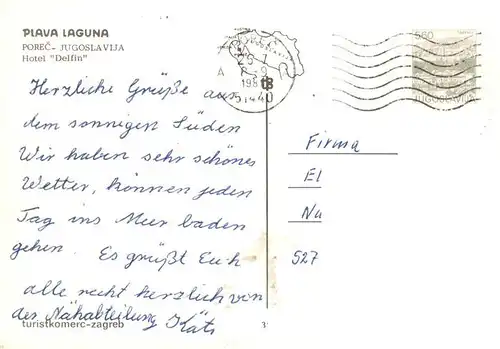 PLAVA LAGUNA
POREČ - JUGOSLAVIJA
Hotel "Delfin"
Herzliche Grüße aus
dem sonnigen Süden
Wir haben sehr schönes
Wetter, können jeden
Tag ins Meer baden
gehen. Es grüßt Euch
alle recht herzlich von
der Nähabteilung Käte
turistkomerc-zagreb
3
560
JUGOSLAVIJA
Firma
El
Na
527